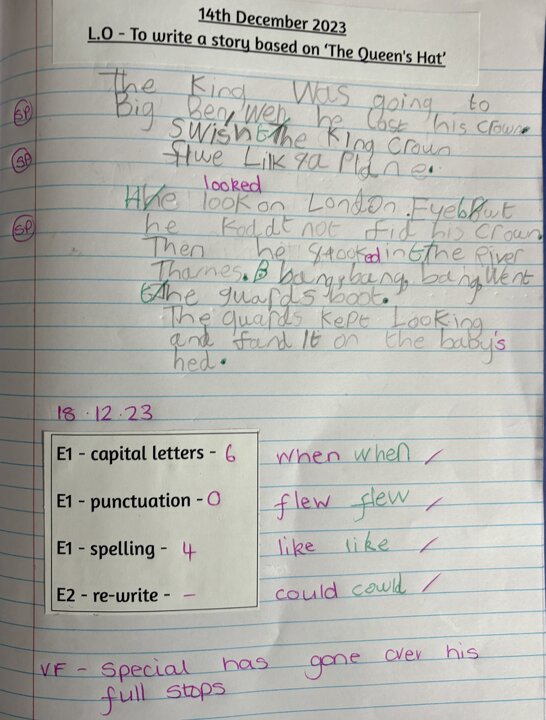 14th December 2023
L.O - To write a story based on 'The Queen's Hat'
The King Was going to
SP Big Ben, Weh he Lost his Crown.
Swish the King Crown
SP flwe Lilk a Plane.
looked
He look on London Eye but
SP he Koddt not fid his Crown.
Then he looked in the River
Thames. B bang, bang, bang Went
the guards boot.
The guards Kept Looking
and fand It on the baby's
hed.
18.12.23
E1 - capital letters - 6 when when /
E1 - punctuation - 0 flew flew /
E1 - spelling - 4 like like /
E2 - re-write - - could could /
VF - Special has gone over his
full stops